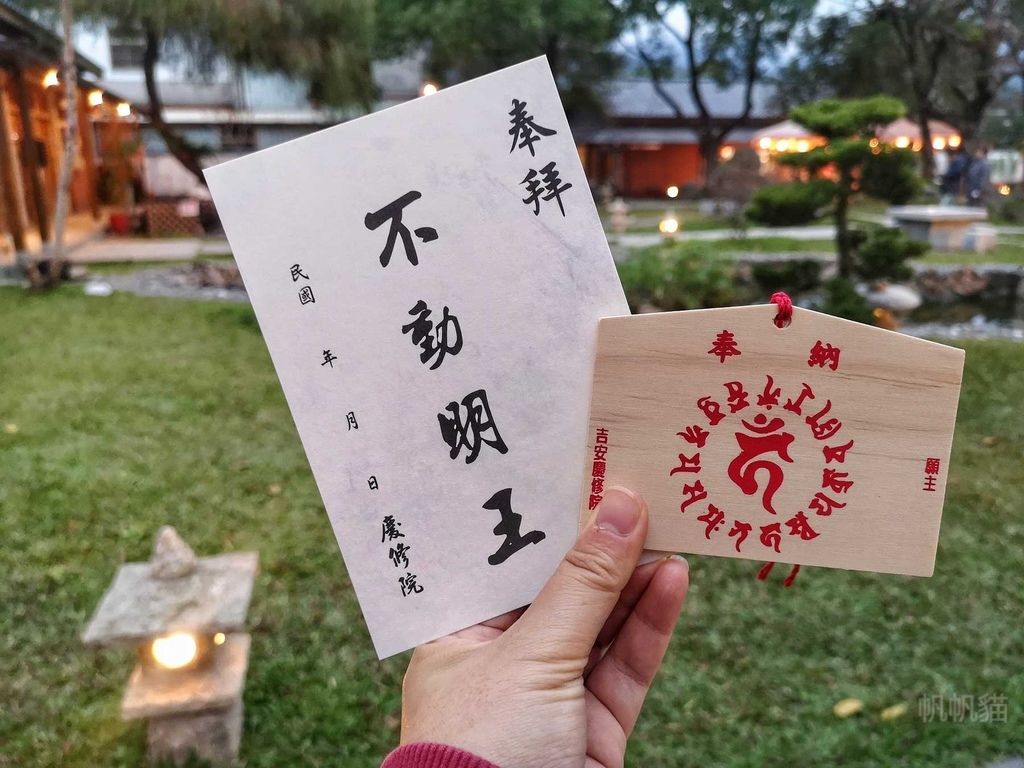 奉拜
不動明王
民國 年 月 日
慶修院
奉 納
願主
吉安慶修院
帆帆貓